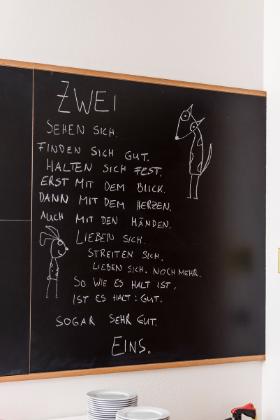 ZWEI
SEHEN SICH.
FINDEN SICH GUT.
HALTEN SICH FEST.
ERST MIT DEM BLICK.
DANN MIT DEM HERZEN.
AUCH MIT DEN HÄNDEN.
LIEBEN SICH.
STREITEN SICH.
LIEBEN SICH. NOCH MEHR.
SO WIE ES HALT IST,
IST ES HALT: GUT.
SOGAR SEHR GUT.
EINS.